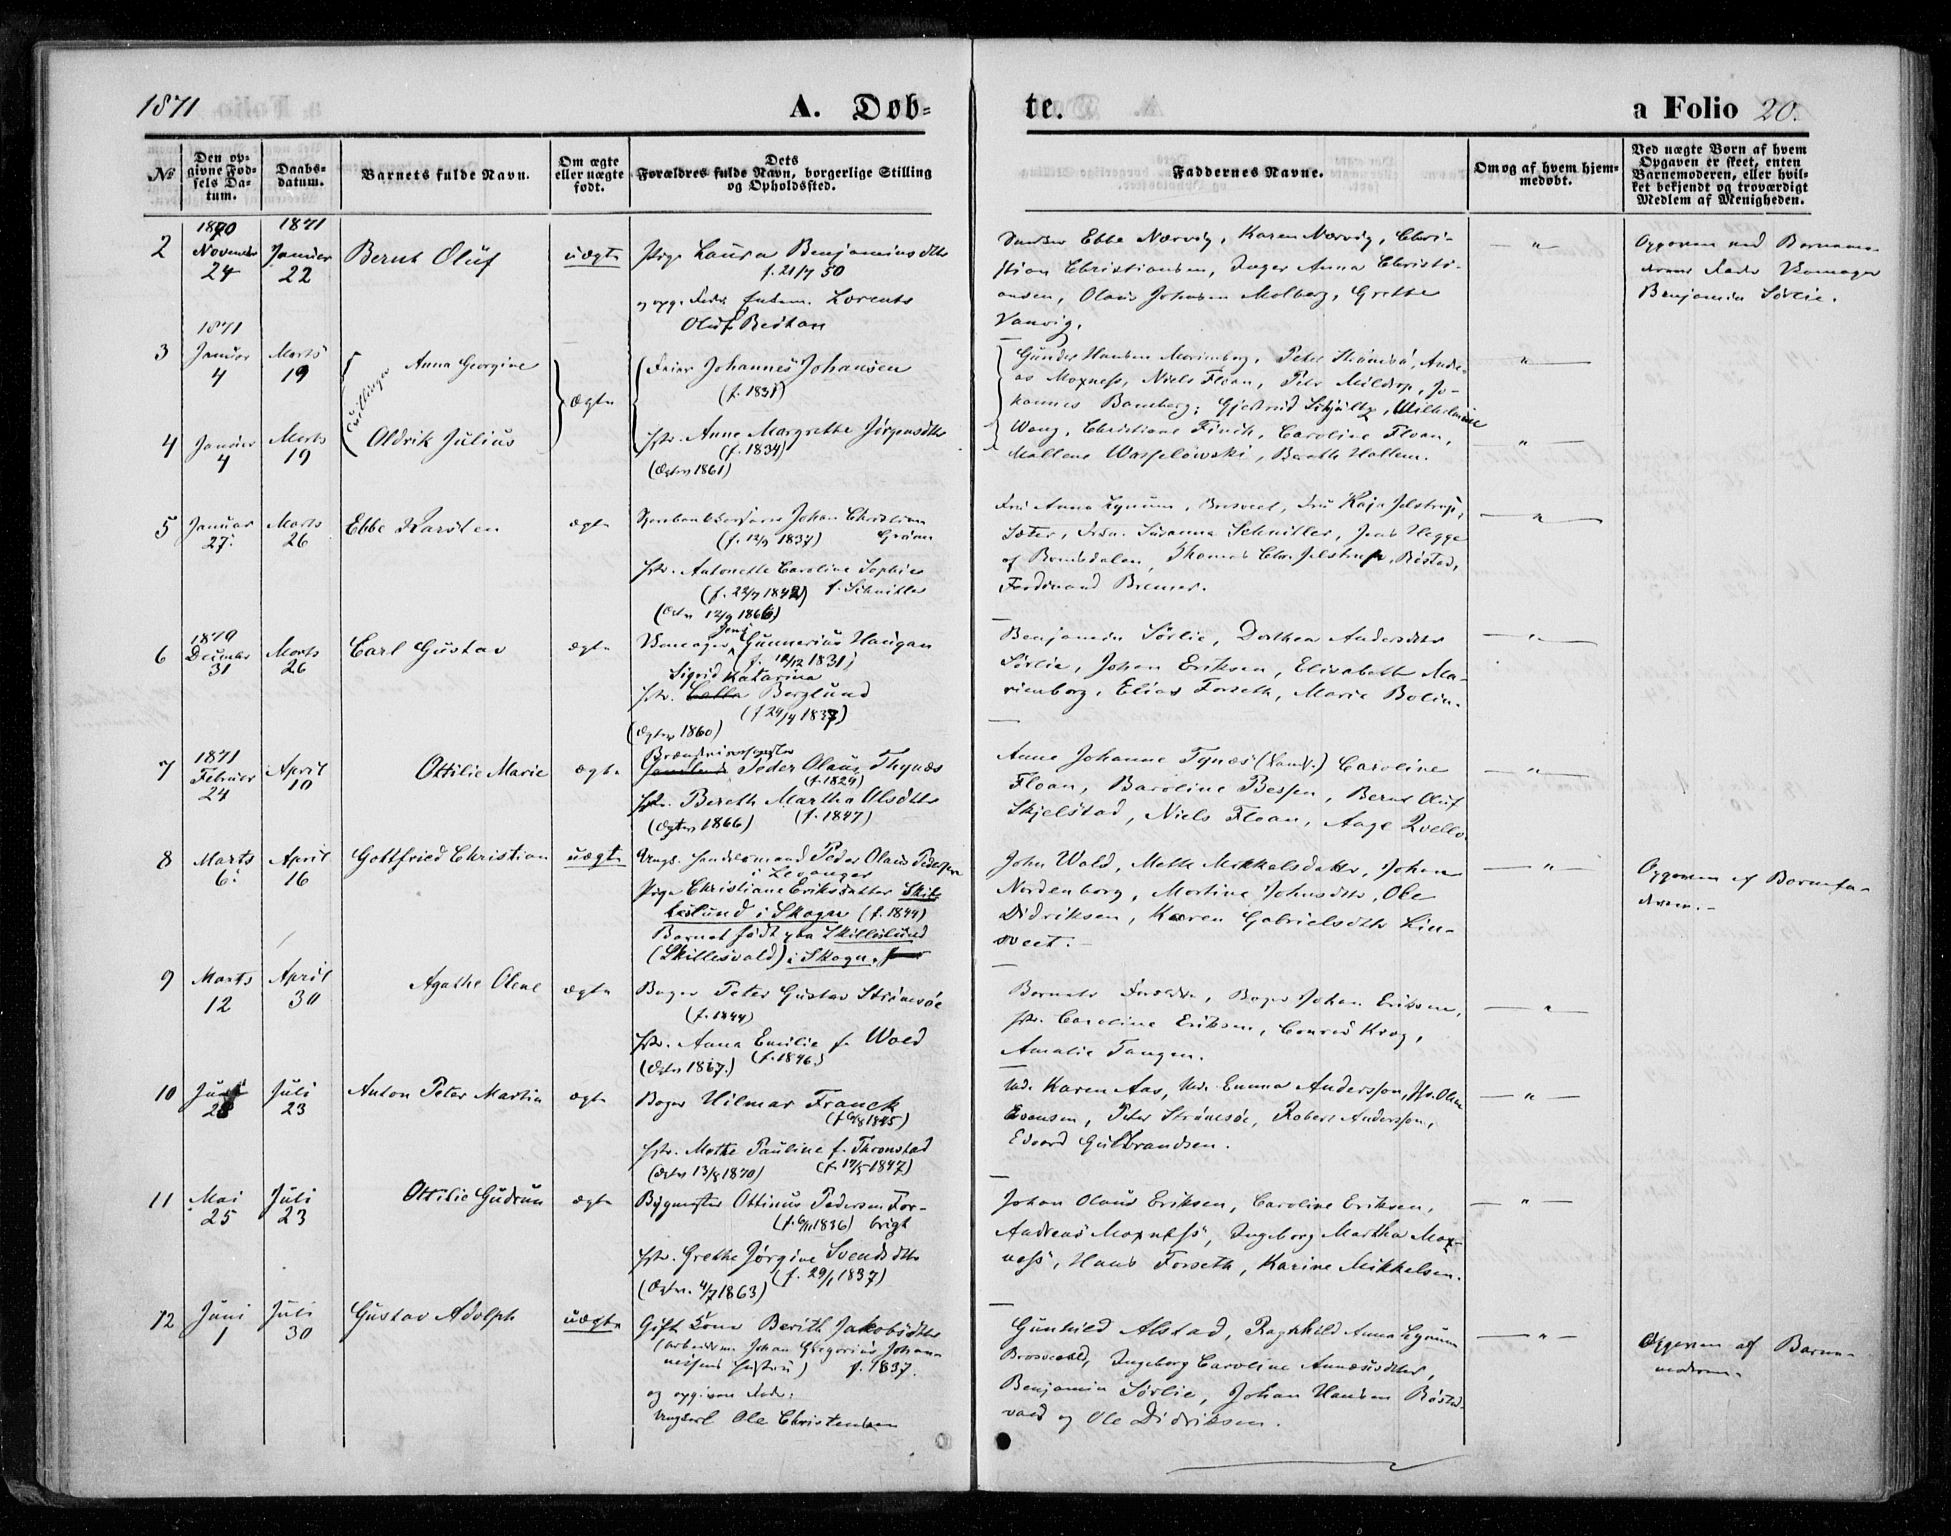 1871 A. Døb- te. a Folio 20.
No
Den op-
givne Fød-
sels Da-
tum.
Daabs-
datum.
Barnets fulde Navn.
Om ægte
eller uægte
født.
Dets
Forældres fulde Navn, borgerlige Stilling
og Opholdssted.
Faddernes Navne.
Om og af hvem hjem-
medøbt.
Ved uægte Børn af hvem
Opgaven er skeet, enten
Barnemoderen, eller hvil-
ket bekjendt og troværdigt
Medlem af Menigheden.
2
1870
November
24
1871
Januar
22
Bernt Oluf
uægte
Pige Laura Benjaminsdtr
f. 21/7 50
og opg. Fader Lorents
Oluf Beitan
Ebbe Nærvig, Karen Nærvig, Chri-
stian Christiansen, Anna Christi-
ansen, Olaus Johnsen Molberg, Grethe
Vanvig,
— " —
Opgaven ved Barnemo-
derens Fader
Benjamin Sørlie.
3
1871
Januar
4
Marts
19
Tvillinger
Anna Georgine
ægte
Johannes Johansen
(f. 1831)
Gunder Hansen Marienborg, Peter Strømsö, Andre-
as Moxness, Niels Floan, Petr Mildrop, Jo-
hannes Bamberg, Gjertrud Schjultz, Wilhelmine
"
4
Januar
4
Marts
19
Oldrik Julius
Hstr. Anne Margrethe Jørgensdtr
(f. 1834)
(Egtev. 1861)
Wang, Christiane Finch, Caroline Floan,
Mallene Wasselowski, Bereth Hallem.
"
5
Januar
27.
Marts
26
Ebbe Karsten
ægte
Johan Christian
(f. 12/9 1837) Grønn
Hstr. Antonette Caroline Sophie
(f. 22/7 1842) f. Schnitler
(Egtev. 12/9 1866)
Fru Anna Lynum, Brosveet, Fru Kaja Jelstrup,
Sæter, Frkn. Susanna Schnitler, Jens Hegge
af Romsdalen, Thomas Chr. Jelstrup, Ristad,
Ferdinand Bremer.
"
6
1870
December
31
Marts
26
Carl Gustav
ægte
Jens
Gunnerius Haugan
(f. 10/12 1831)
Sigrid Katarina
Hstr. Berglund
(f 24/4 1837)
(Egtev. 1860)
Benjamin Sørlie, Dorthea Andersdtr
Sørlie, Johan Eriksen, Elisabeth Ma-
rienborg, Elias Forseth, Marie Bolin.
"
7
1871
Februar
24
April
10
Ottilie Marie
ægte
Peder Olaus Thynæs
(f. 1829)
Hstr. Bereth Martha Olsdtr
(Egtev. 1866) (f. 1847)
Anne Johanne Tynæs Caroline
Floan, Baroline Bessen, Bernt Oluf
Skjelstad, Niels Floan, Aage Qvello
"
8
Marts
6.
April
16
Gottfried Christian
uægte
Ungk. Handelsmand Peder Olaus Pedersen
i Levanger
Pige Christiane Eriksdatter Skil-
leslund i Skogn (f. 1844)
Barnet født paa Skilleslund
(Skillesvald) i Skogn.
John Wold, Meth Mikkelsdatter, Johan
Nordenborg, Mortine Johnsdtr, Ole
Didriksen, Karen Gabrielsdtr Lin-
sveet.
"
Opgaven af Barnefa-
deren.
9
Marts
12
April
30
Agathe Olene
ægte
Bager Peter Gustav Strømsöe
(f. 1844)
Hstr. Anna Emilie f. Wold
(Egtev 1867.) (f. 1846.)
Barnets Forældre, Bager Johan Eriksen,
Hstr. Caroline Eriksen, Conrad Krog,
Amalie Tangen.
"
10
Juni
28
Juli
23
Anton Peter Martin
ægte
Bager Hilmar Franck
(f. 6/8 1845)
Hstr. Mette Pauline f. Thronstad
(Egtev 13/8 1870) (f. 17/5 1847)
Md. Karen Aas, Md. Emma Andersson, Hstr. Oline
Evensen, Peter Strømsöe, Robert Andersson,
Edvard Gulbrandsen.
"
11
Mai
25
Juli
23
Ottilie Gudrun
ægte
Bygmester Ottinus Pedersen For-
(f. 6/11 1836) brigt
Hstr. Grethe Jørgine Svendsdtr
(f. 29/1 1837)
(Egtev. 4/7 1863)
Johan Olaus Eriksen, Caroline Eriksen,
Andreas Moxness, Ingeborg Martha Mox-
ness, Hans Forseth, Karine Mikkelsen.
"
12
Juni
1
Juli
30
Gustav Adolph
uægte
Gift Kone Berith Jakobsdtr
(Arbeidsm. Johan Gregorius Johan-
nesens Hustru) f. 1837.
og opgiven Fader:
Ungkarl Ole Christensen
Gunhild Alstad, Ragnhild Anna Lynum
Brosveet, Ingeborg Caroline Annæusdtr,
Benjamin Sørlie, Johan Hansen Røstad-
vald og Ole Didriksen.
"
Opgaven af Barne-
moderen.